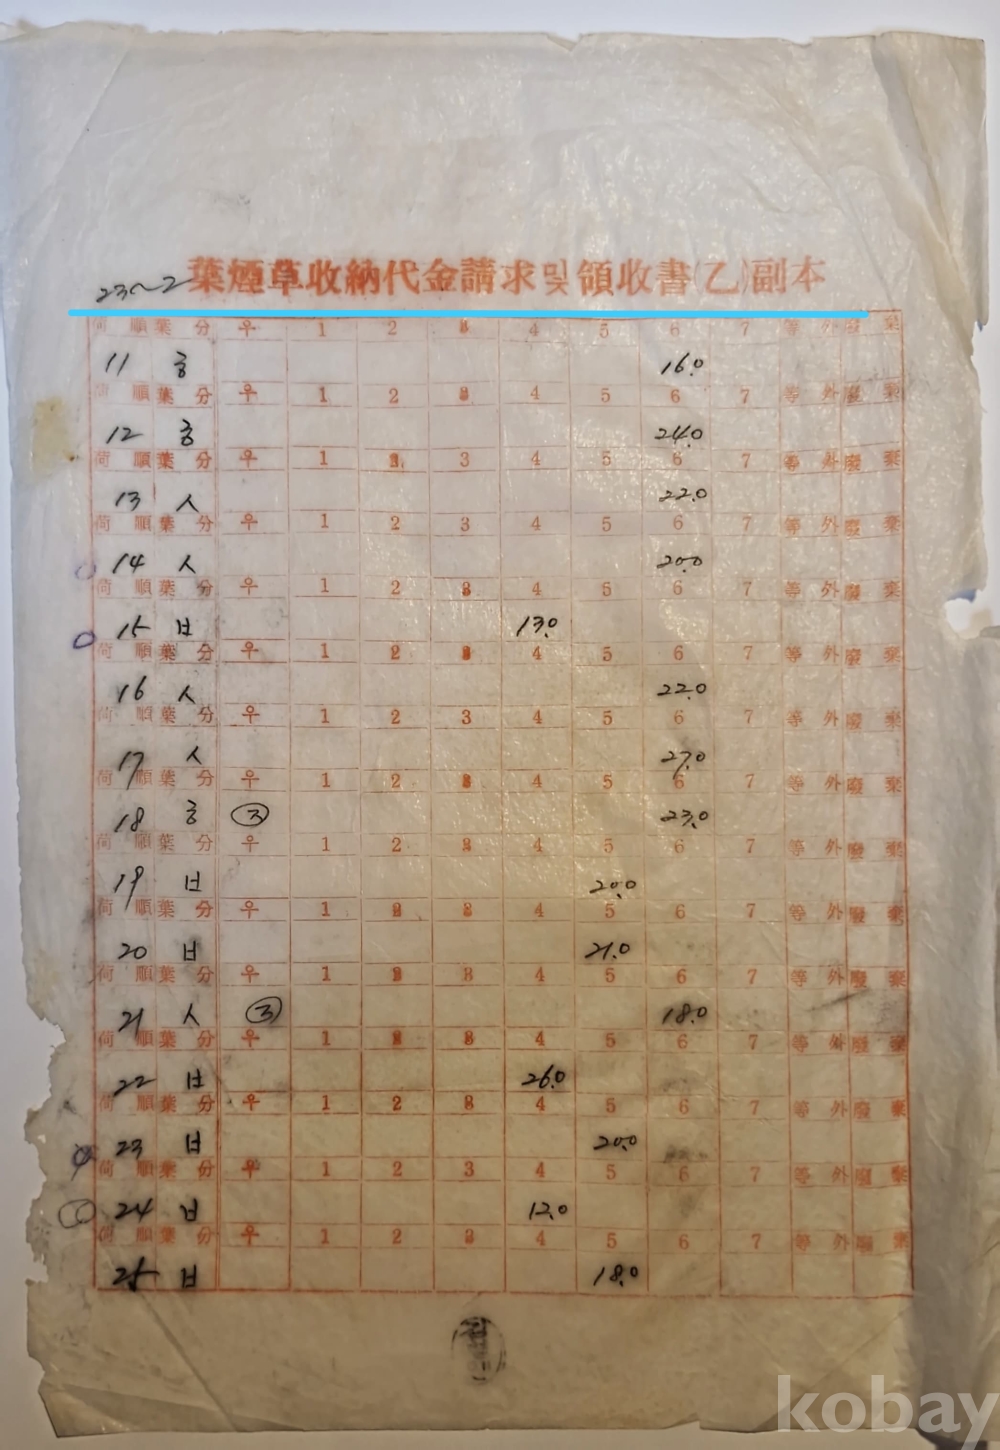 23~2 葉煙草收納代金請求및領收書(乙)副本
荷順 葉分 우 1 2 3 4 5 6 7 等外 廢棄
11 중 16.0
荷順 葉分 우 1 2 3 4 5 6 7 等外 廢棄
12 중 24.0
荷順 葉分 우 1 2 3 4 5 6 7 等外 廢棄
13 人 22.0
荷順 葉分 우 1 2 3 4 5 6 7 等外 廢棄
14 人 20.0
荷順 葉分 우 1 2 3 4 5 6 7 等外 廢棄
15 브 13.0
荷順 葉分 우 1 2 3 4 5 6 7 等外 廢棄
16 人 22.0
荷順 葉分 우 1 2 3 4 5 6 7 等外 廢棄
17 人 27.0
荷順 葉分 우 1 2 3 4 5 6 7 等外 廢棄
18 중 ③ 23.0
荷順 葉分 우 1 2 3 4 5 6 7 等外 廢棄
19 브 20.0
荷順 葉分 우 1 2 3 4 5 6 7 等外 廢棄
20 브 21.0
荷順 葉分 우 1 2 3 4 5 6 7 等外 廢棄
21 人 ③ 18.0
荷順 葉分 우 1 2 3 4 5 6 7 等外 廢棄
22 브 26.0
荷順 葉分 우 1 2 3 4 5 6 7 等外 廢棄
23 브 20.0
荷順 葉分 우 1 2 3 4 5 6 7 等外 廢棄
24 브 12.0
荷順 葉分 우 1 2 3 4 5 6 7 等外 廢棄
25 브 18.0
kobay